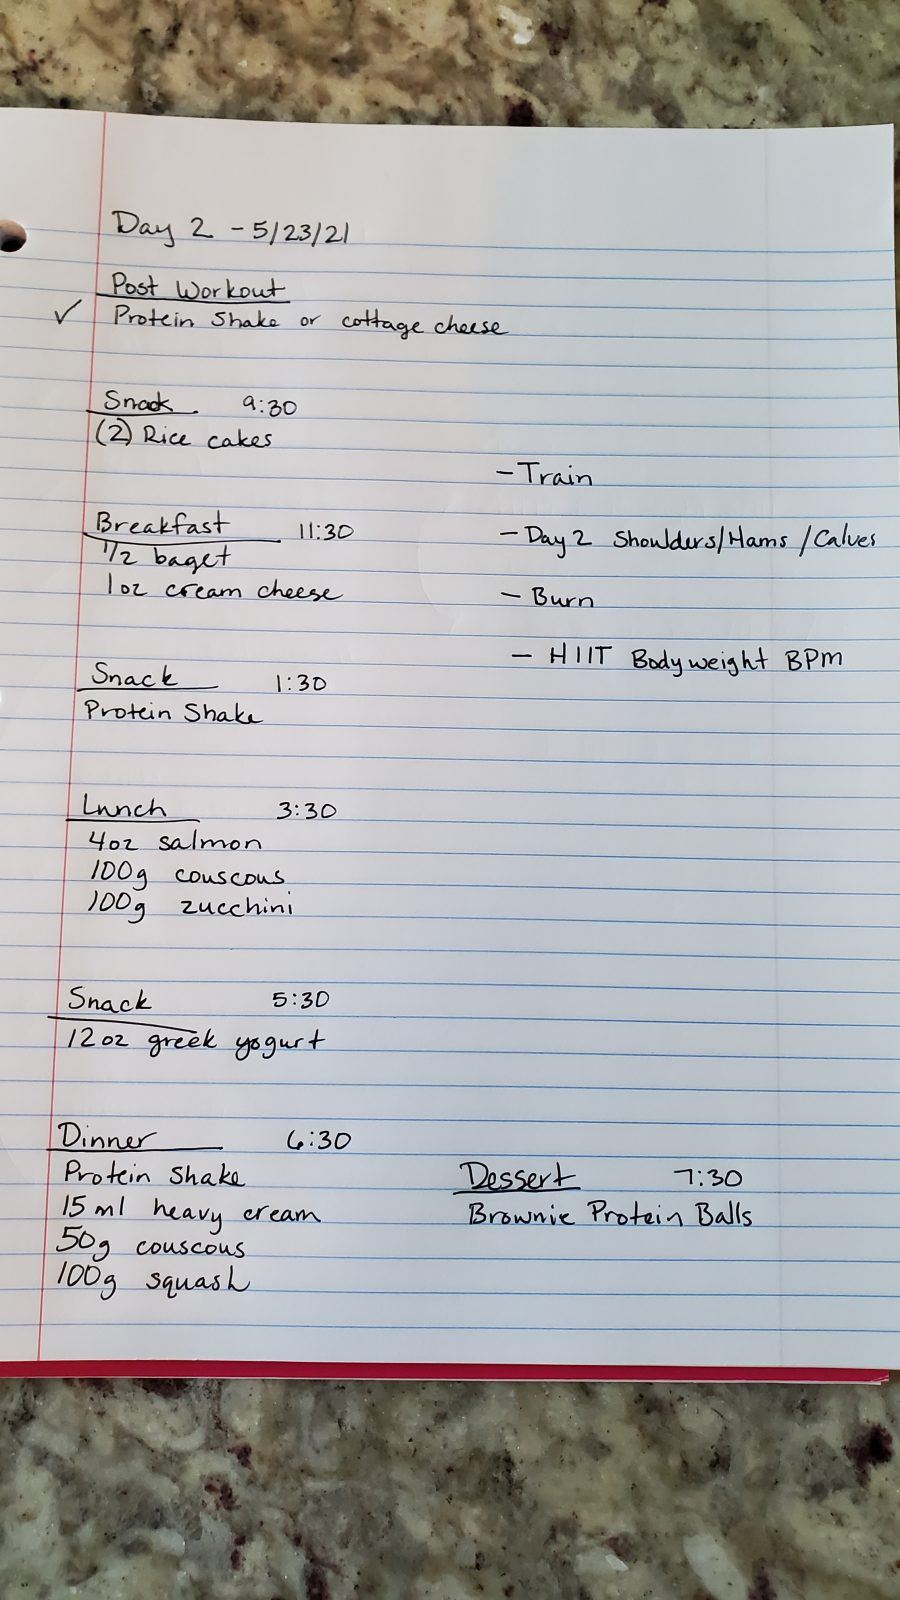 Day 2 - 5/23/21
Post Workout
✓ Protein Shake or cottage cheese
Snack 9:30
(2) Rice cakes
Breakfast 11:30
1/2 baget
1oz cream cheese
Snack 1:30
Protein Shake
Lunch 3:30
4oz salmon
100g couscous
100g zucchini
Snack 5:30
12oz greek yogurt
Dinner 6:30
Protein Shake
15ml heavy cream
50g couscous
100g squash
- Train
- Day 2 Shoulders/Hams/Calves
- Burn
- HIIT Bodyweight BPM
Dessert 7:30
Brownie Protein Balls